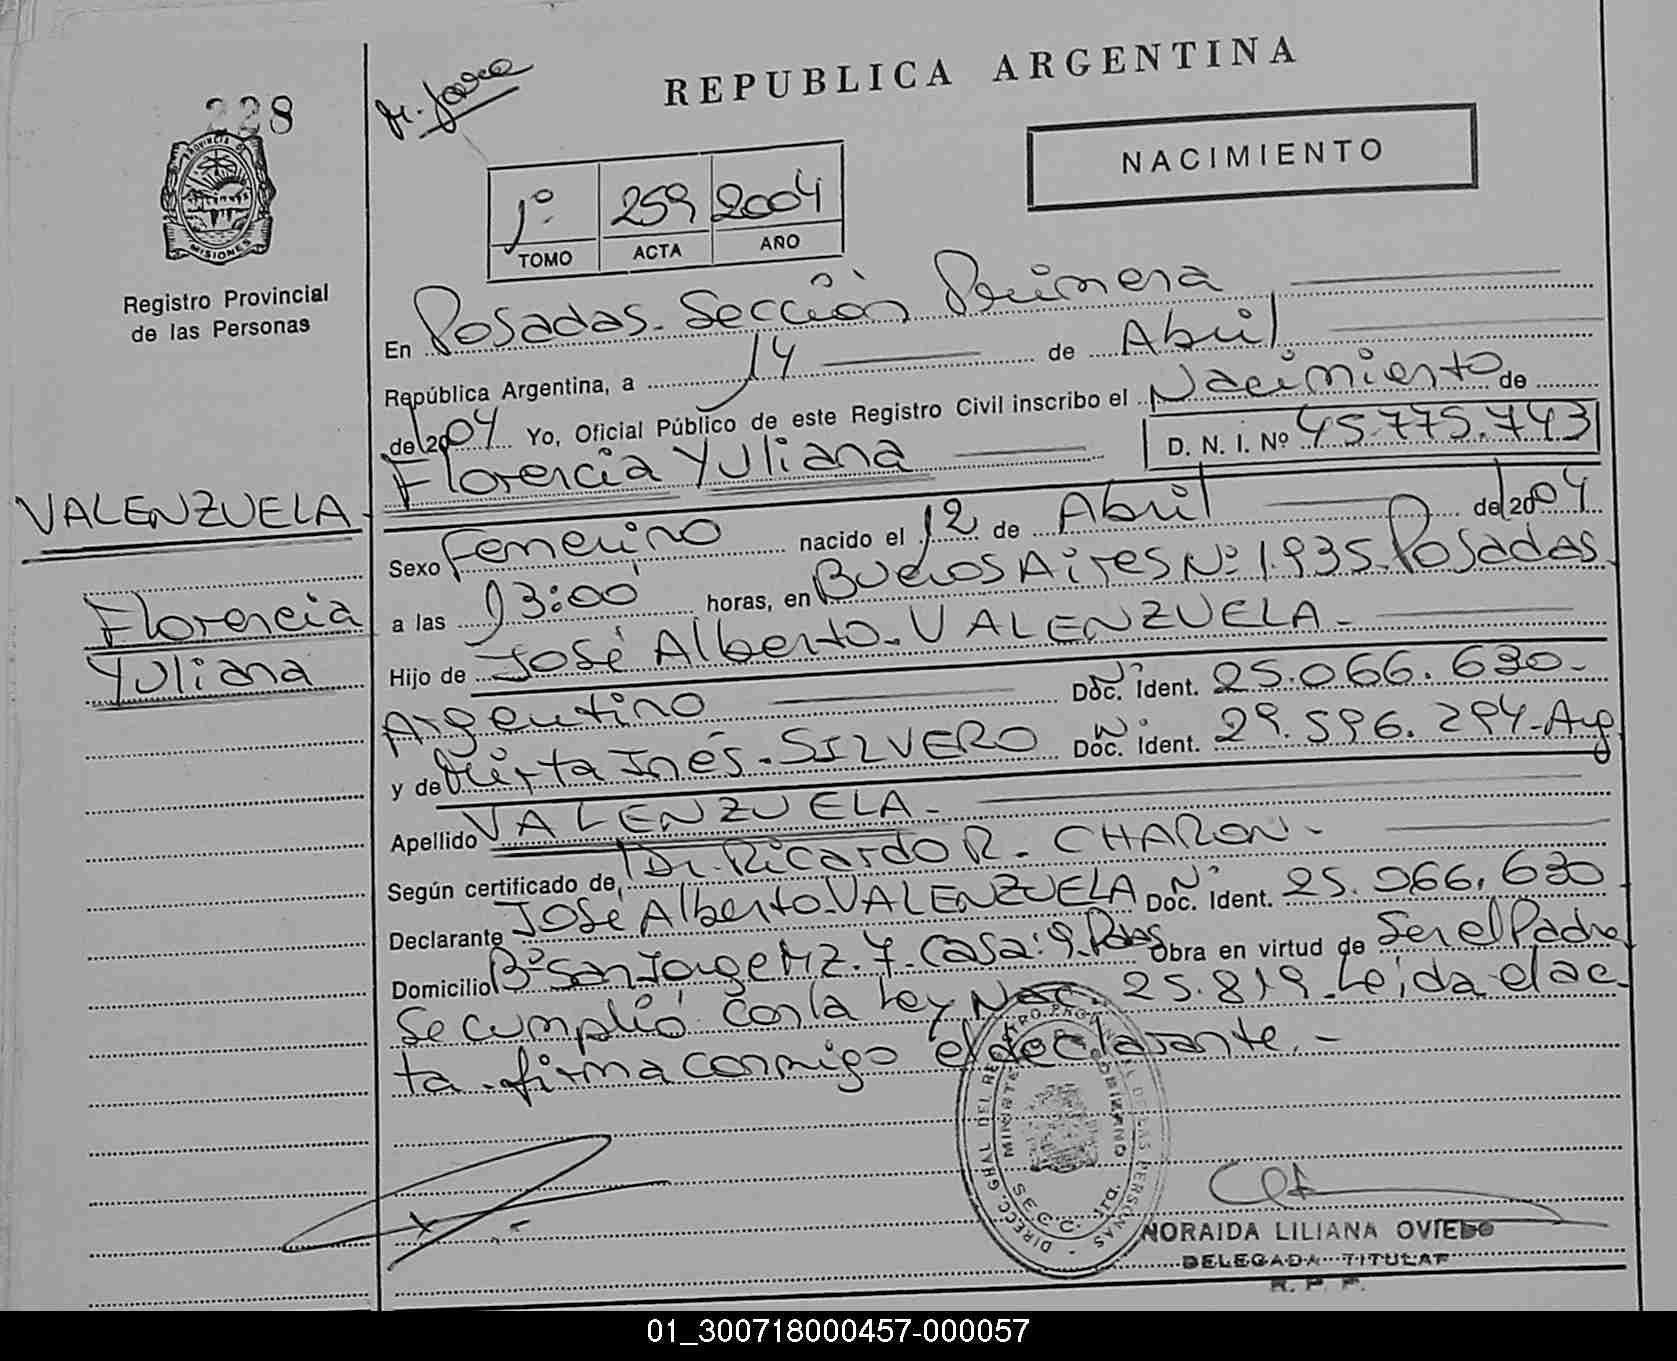 228
Mr. Jara
REPUBLICA ARGENTINA
PROVINCIA DE
MISIONES
Registro Provincial
de las Personas
NACIMIENTO
1º 259 2004
TOMO ACTA AÑO
En Posadas. Sección Primera
República Argentina, a 14 de Abril
de 2004 Yo, Oficial Público de este Registro Civil inscribo el Nacimiento de
Florencia Yuliana D. N. I. Nº 45.775.743
VALENZUELA
Florencia
Yuliana
Sexo Femenino nacido el 12 de Abril de 2004
a las 13:00 horas, en Buenos Aires Nº 1.935. Posadas
Hijo de José Alberto. VALENZUELA.
Argentino Nº Doc. Ident. 25.066.630.
y de Mirta Inés. SILVERO Nº Doc. Ident. 29.596.294. Arg
Apellido VALENZUELA.
Según certificado de, Dr. Ricardo R. CHARON.
Declarante José Alberto. VALENZUELA Nº Doc. Ident. 25.066.630
Domicilio Bº San Jorge Mz. 7. Casa: 9. Pdas Obra en virtud de Ser el Padre
Se cumplió con la Ley Nac. 25.819. Leida el ac
ta. firma conmigo el declarante.
NORAIDA LILIANA OVIEDO
DELEGADA TITULAR
R. P. P.
01_300718000457-000057